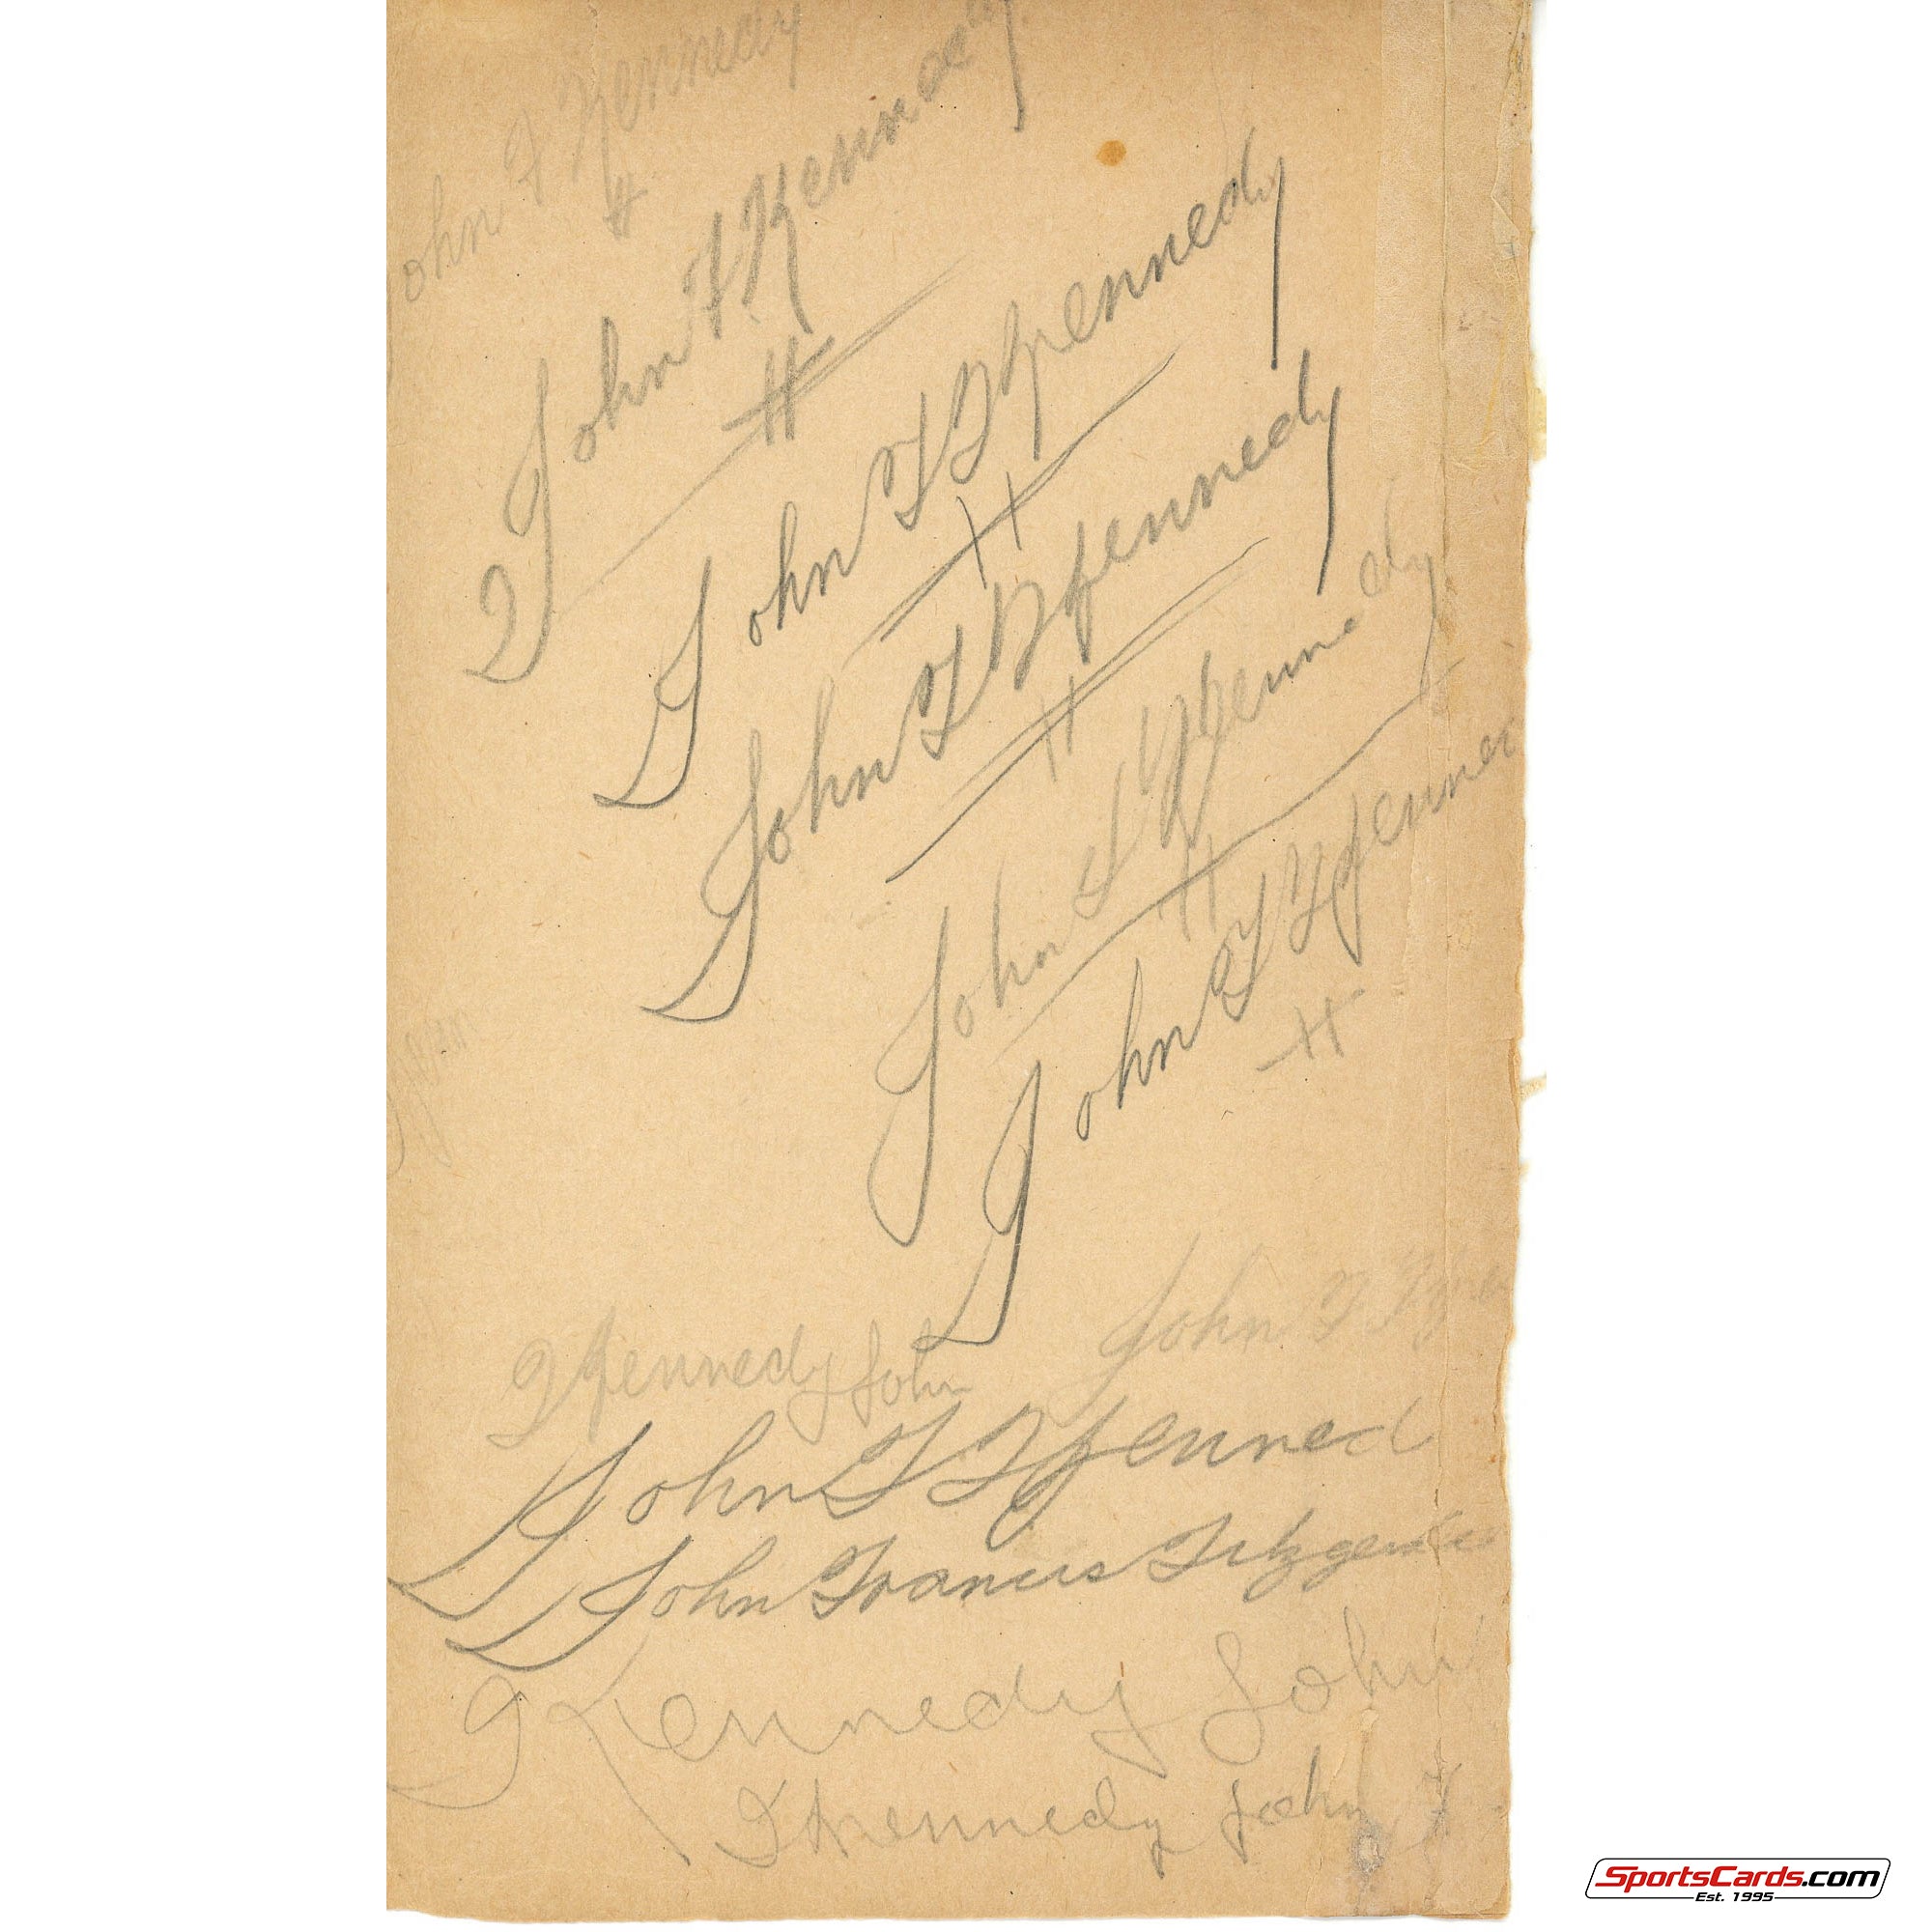 John F Kennedy
John F Kennedy
John F Kennedy
John F Kennedy
John F Kennedy
John F Kenne
John F
Kennedy John
John F Kenned
John Francis Fitzgerald
Kennedy John
Kennedy John F
SportsCards.com
Est. 1995